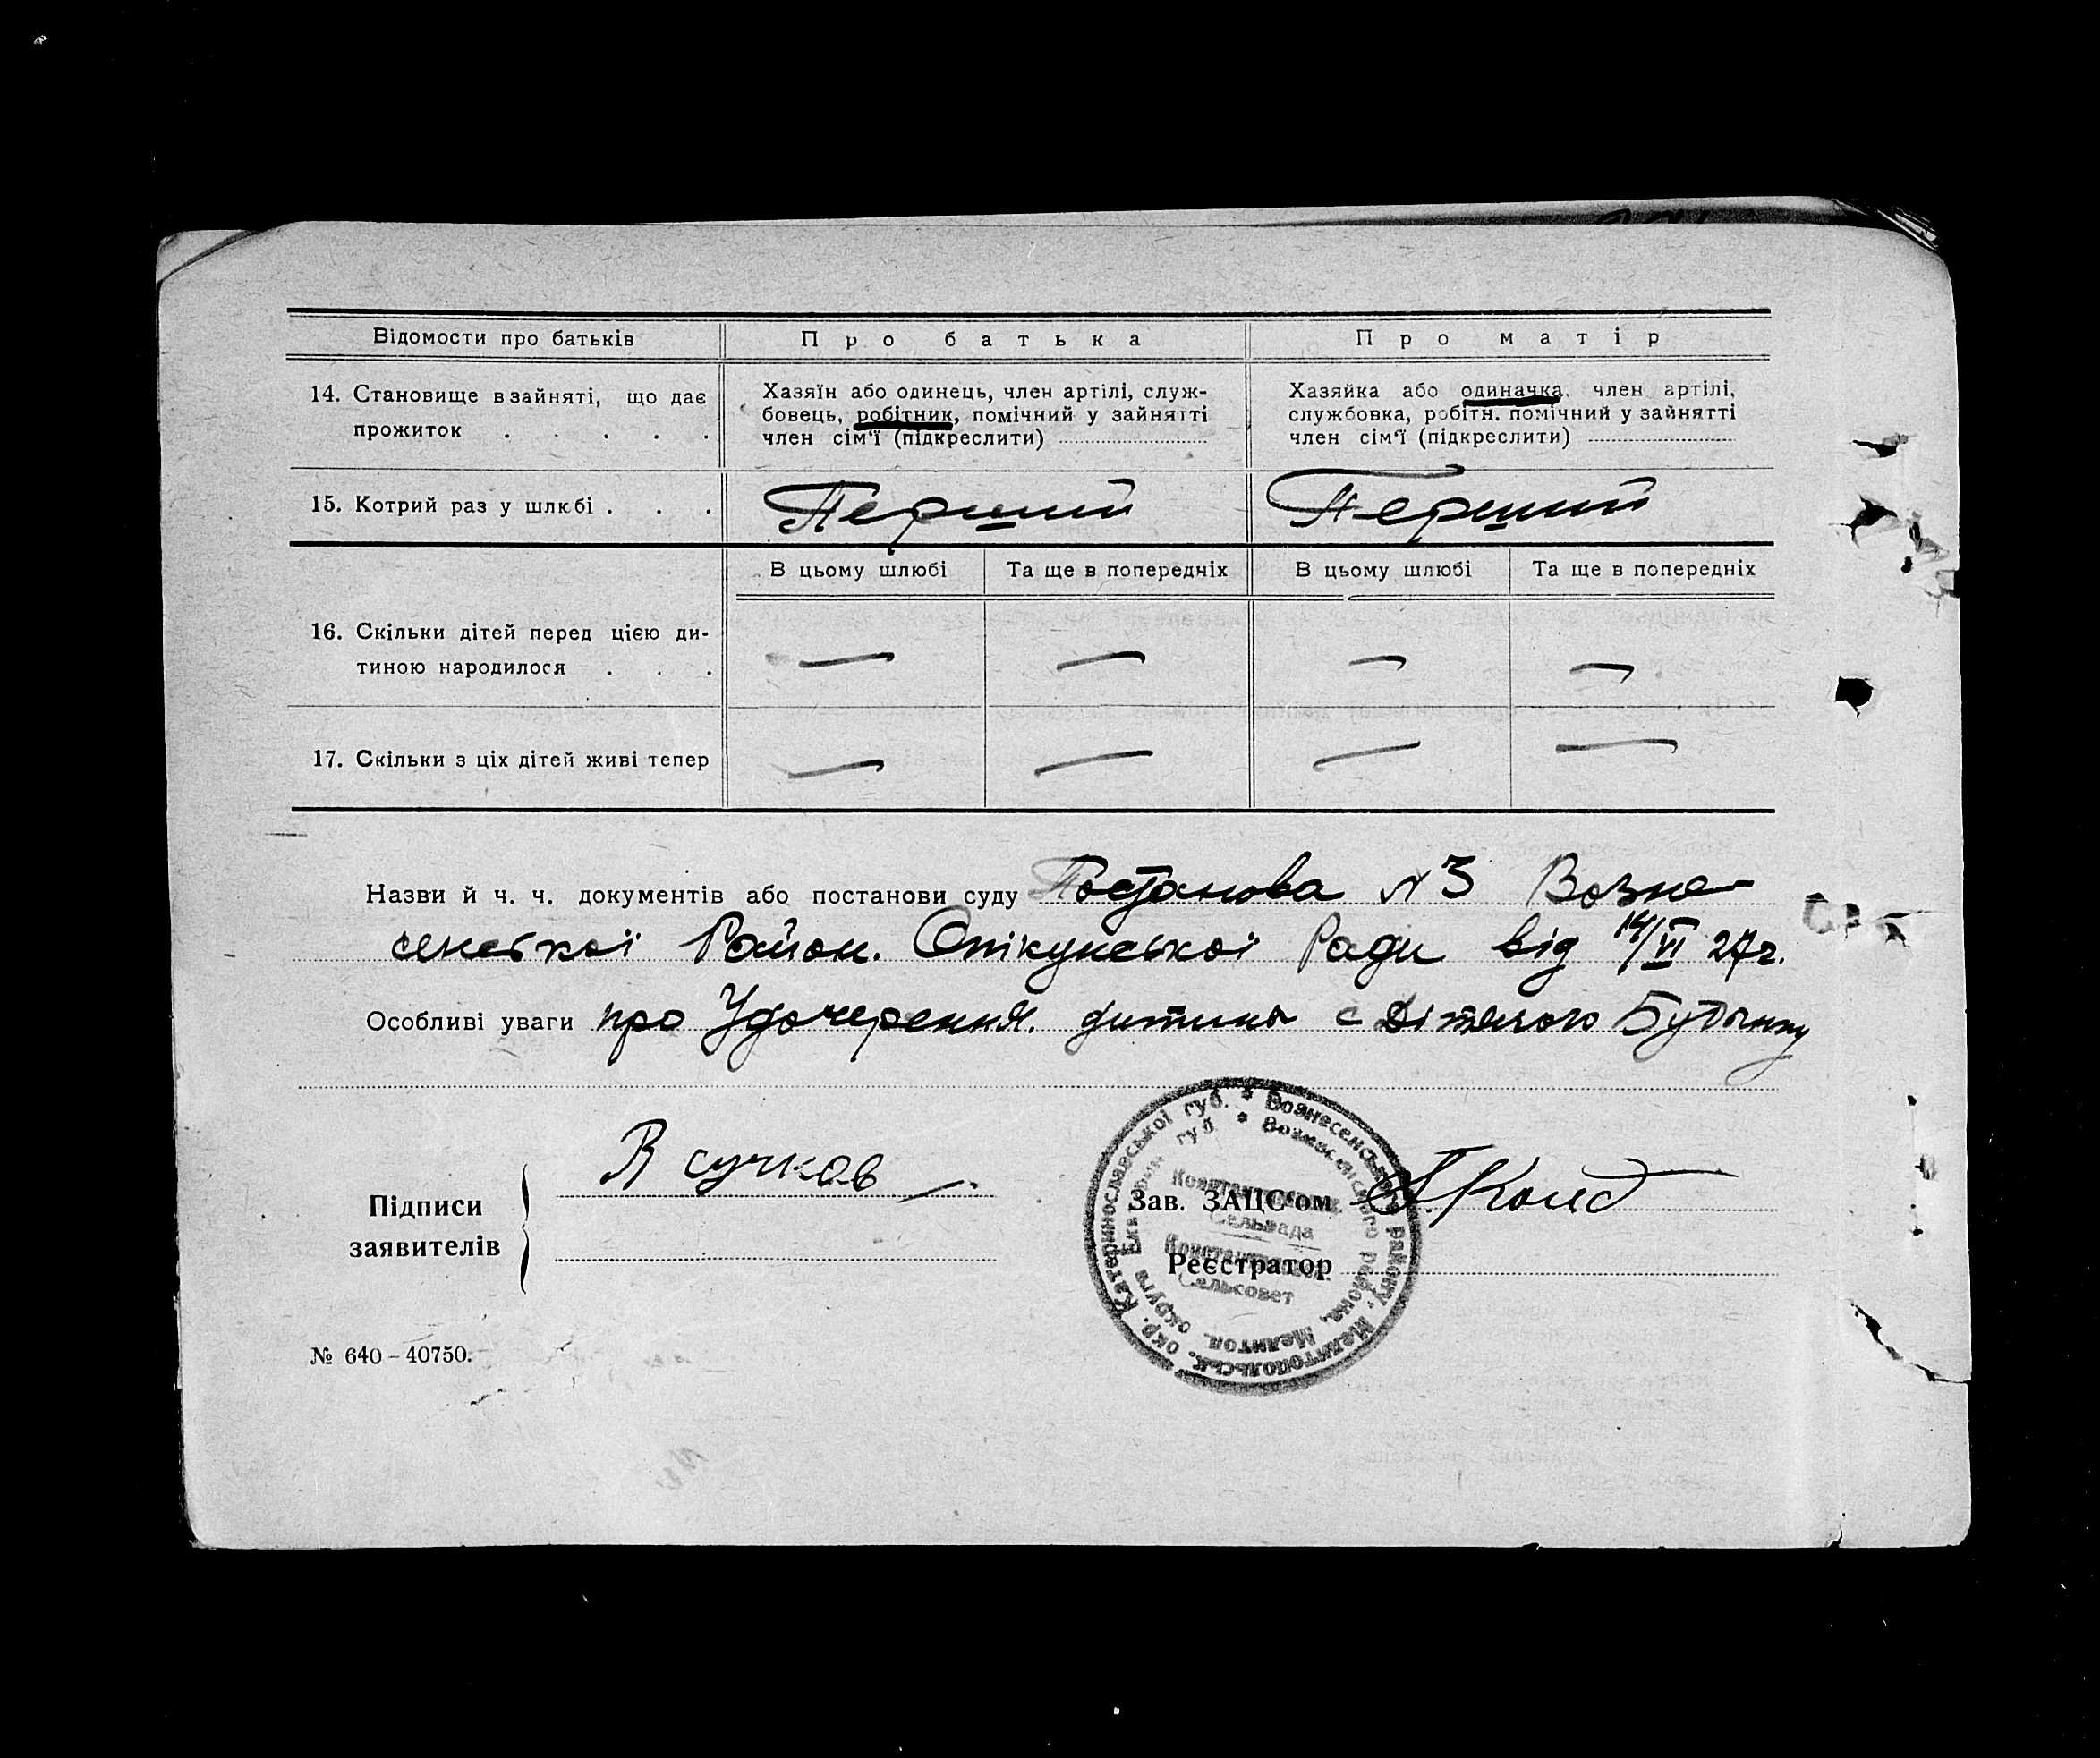 Відомости про батьків Про батька Про матір
14. Становище в зайняті, що дає
прожиток . . . . .
Хазяїн або одинець, член артілі, служ-
бовець, робітник, помічний у зайнятті
член сім'ї (підкреслити)
Хазяйка або одиначка, член артілі,
службовка, робітн. помічний у зайнятті
член сім'ї (підкреслити)
15. Котрий раз у шлюбі . . . Перший Перший
В цьому шлюбі Та ще в попередніх В цьому шлюбі Та ще в попередніх
16. Скільки дітей перед цією ди-
тиною народилося . . . — — — —
17. Скільки з ціх дітей живі тепер — — — —
Назви й ч. ч. документів або постанови суду Постанова №3 Возне-
сенської Район. Опікунської Ради від 14/VI 27г.
Особливі уваги про Удочерення. дитини с Дітячого Будинку
Підписи
заявителів
В сучков
Зав. ЗАЦС'ом
Реєстратор
окр. Катеринославської губ. * Вознесенського району, Мелитопольськ.
губ. * Вознесенского района, Мелитоп. округа
Сельрада
Сельсовет
№ 640–40750.